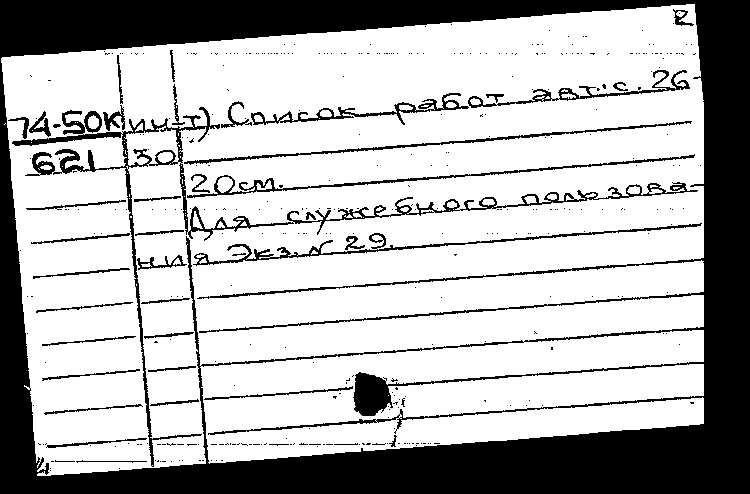 2
74-50К ин-т) Список работ авт: с. 26-
621 30
20см.
Для служебного пользова-
ния Экз. № 29.